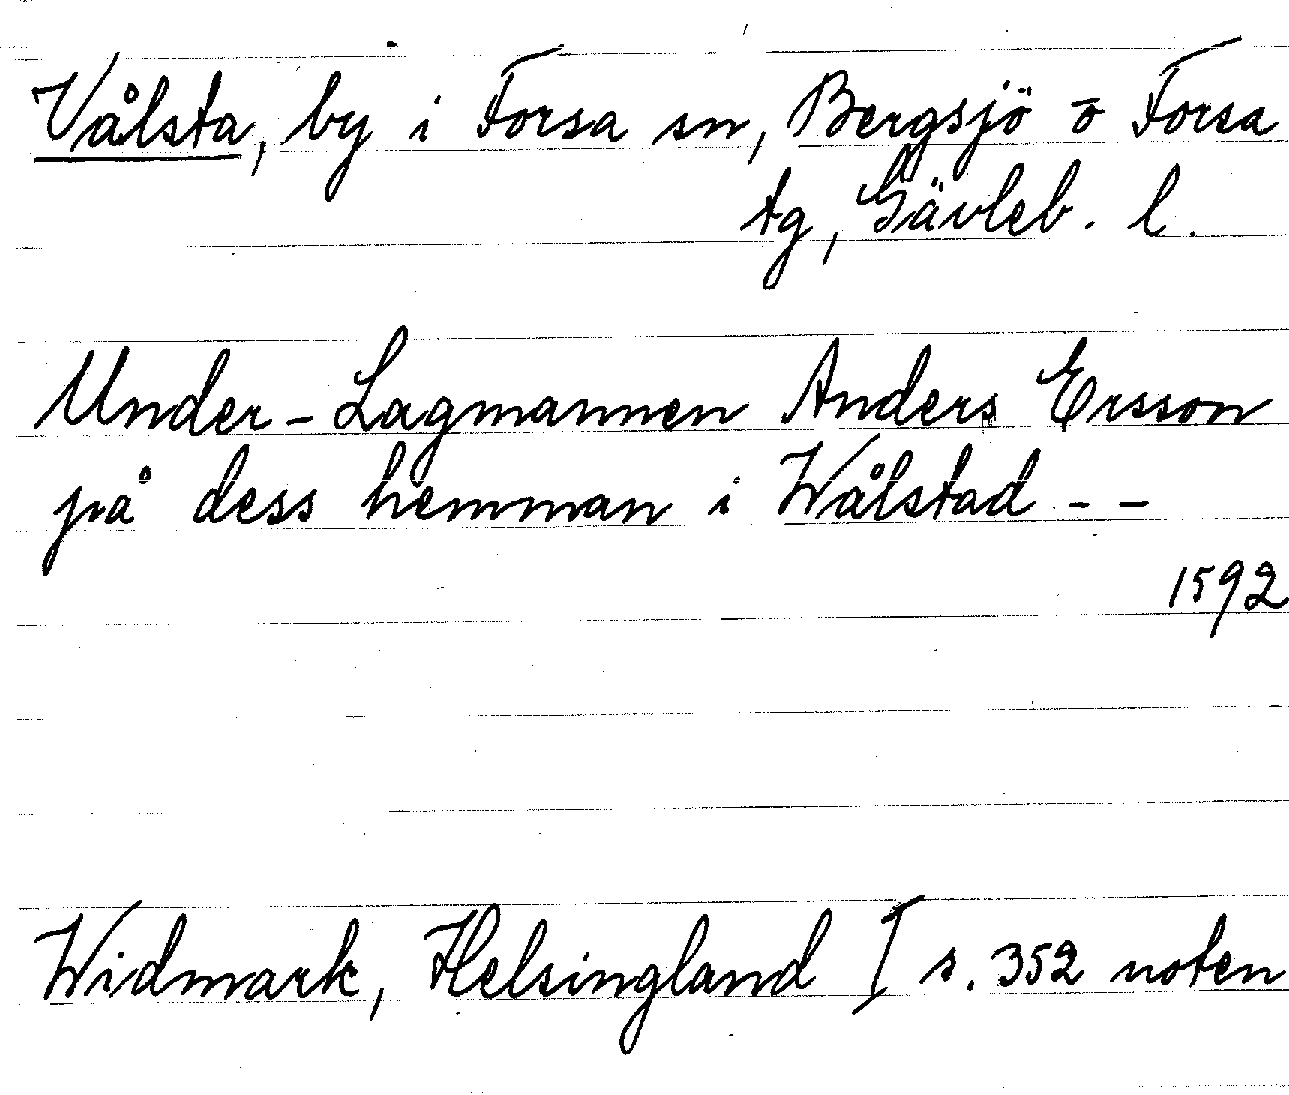 Vålsta, by i Forsa sn, Bergsjö o Forsa
tg, Gävleb. l.
Under-Lagmannen Anders Ersson
på dess hemman i Wålstad - -
1592
Widmark, Helsingland I s. 352 noten